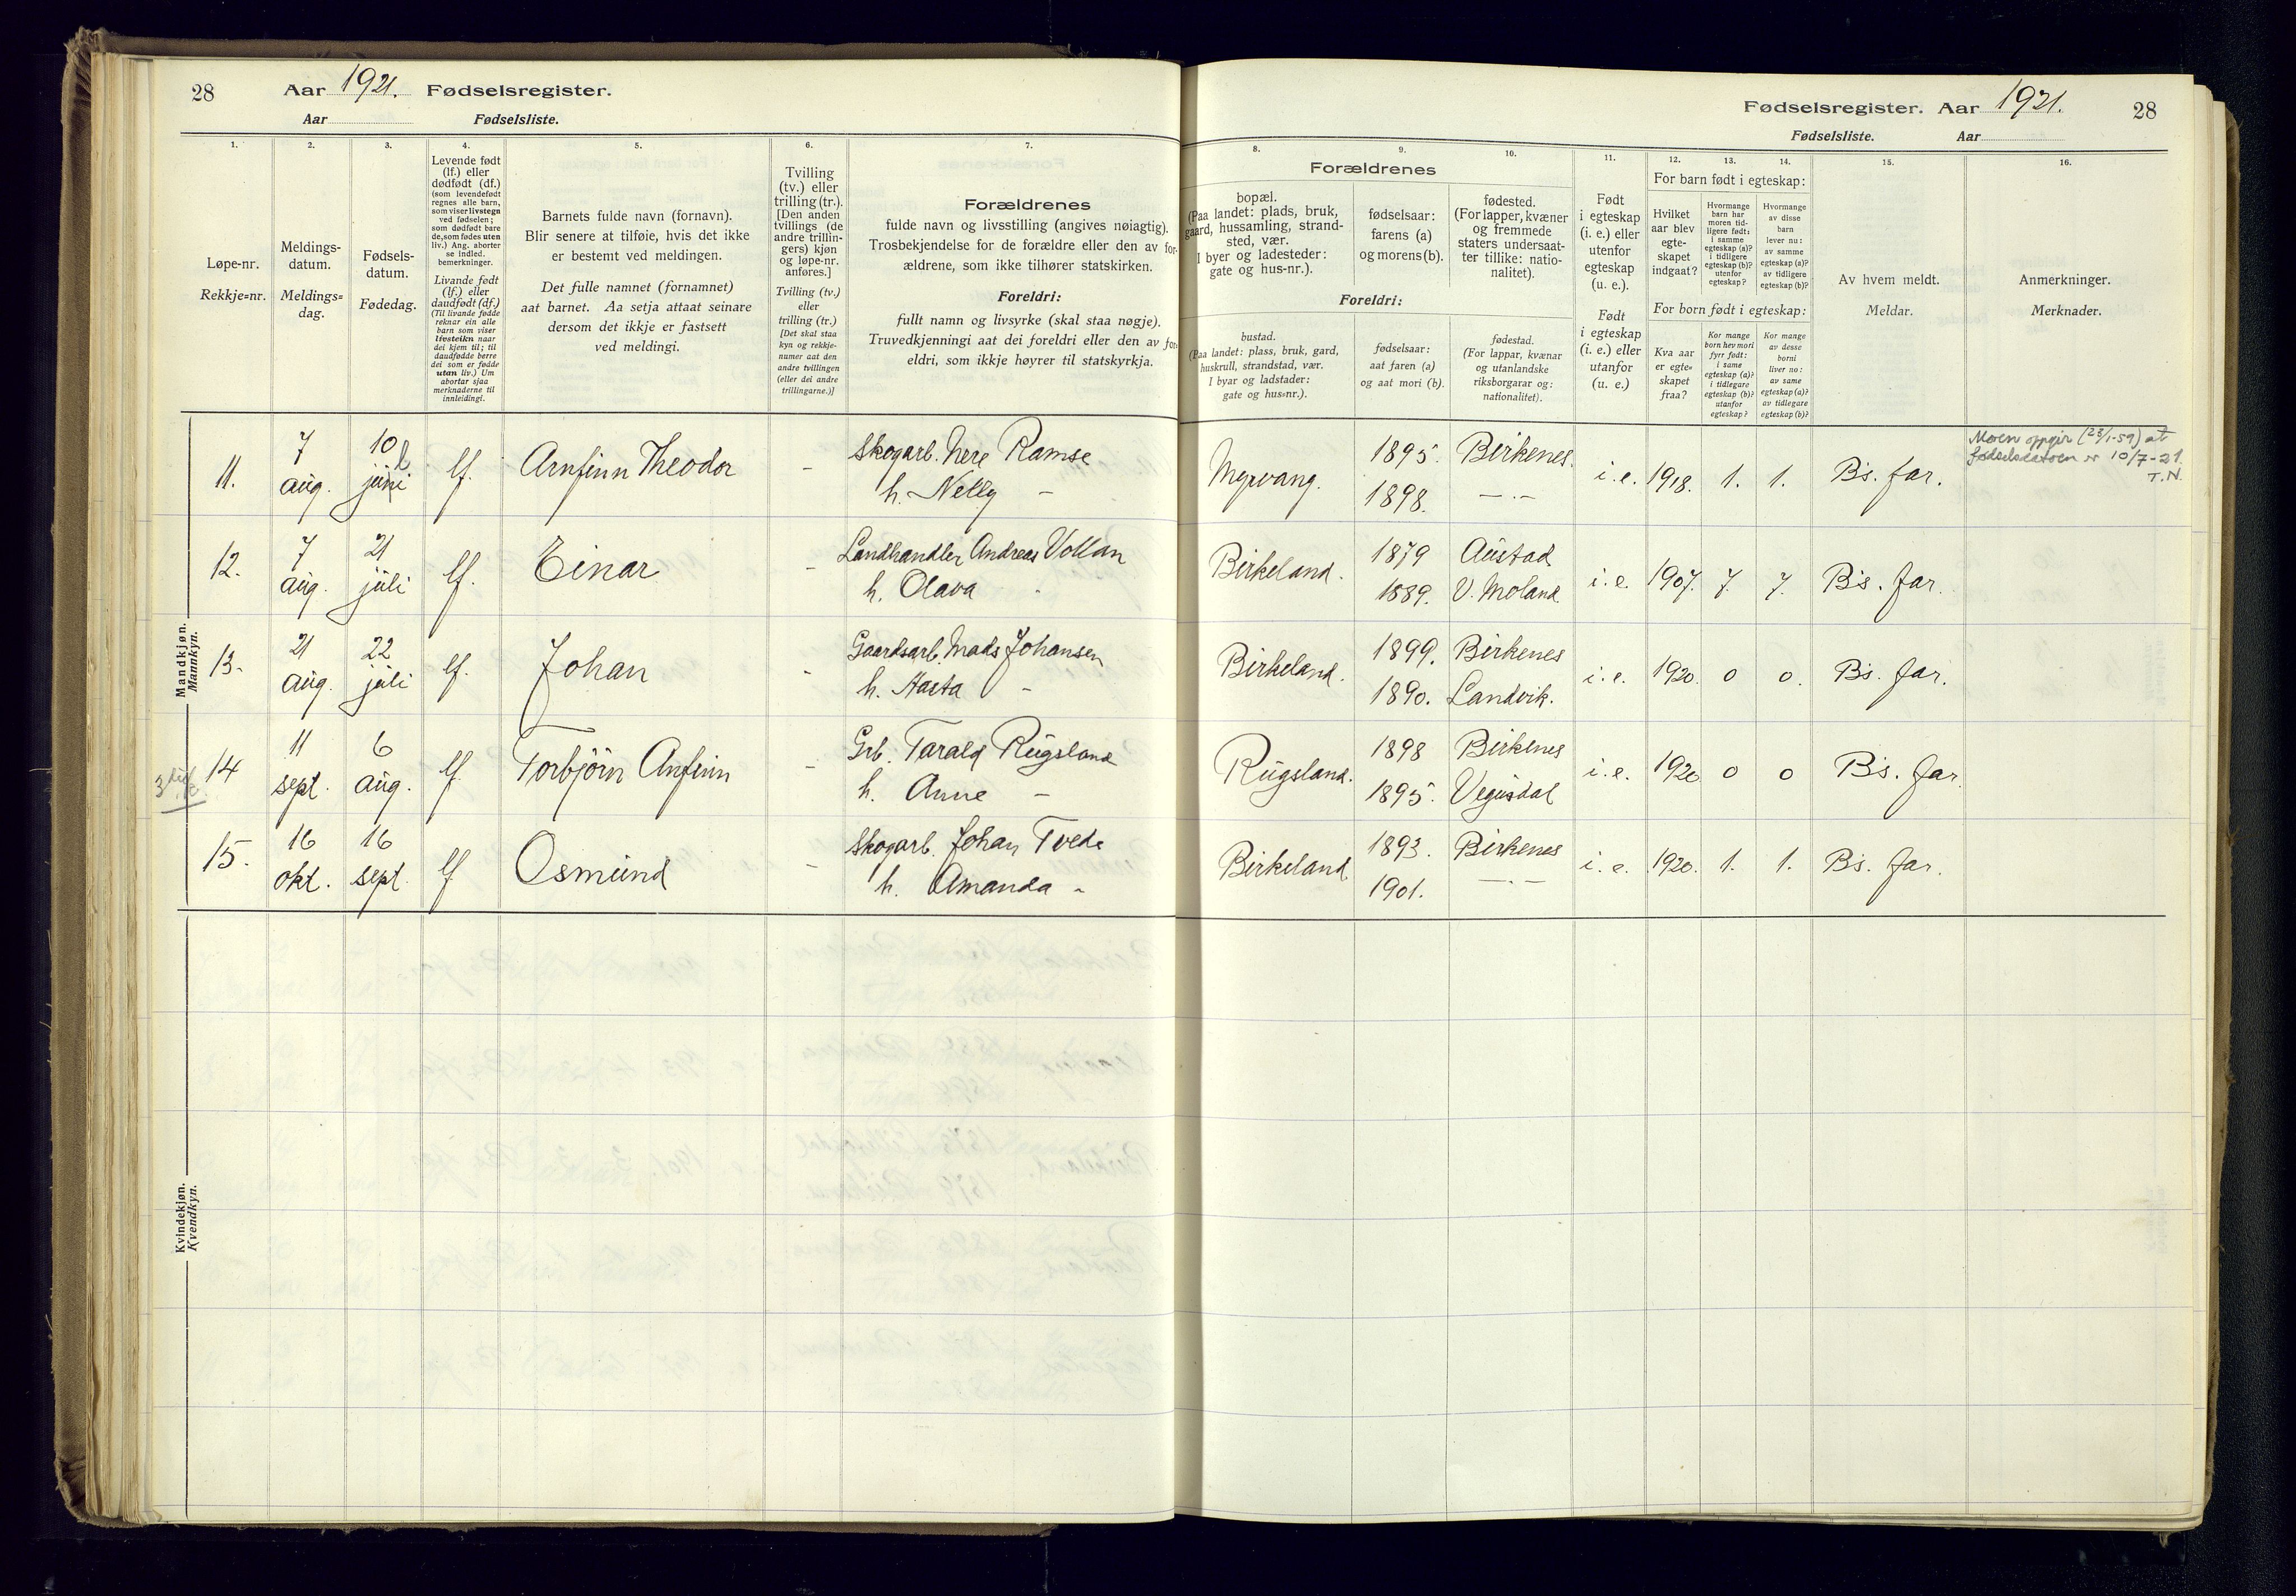 28 Aar 1921. Fødselsregister.
Aar Fødselsliste.
Fødselsregister. Aar 1921. 28
Fødselsliste. Aar
1.
Løpe-nr.
Rekkje=nr.
2.
Meldings-
datum.
Meldings=
dag.
3.
Fødsels-
datum.
Fødedag.
4.
Levende født
(lf.) eller
dødfødt (df.)
(som levendefødt
regnes alle barn,
som viser livstegn
ved fødselen;
som dødfødt bare
de, som fødes uten
liv.) Ang. aborter
se indled.
bemerkninger.
Livande født
(lf.) eller
daudfødt (df.)
(Til livande fødde
reknar ein alle
barn som viser
livsteikn naar
dei kjem til; til
daudfødde berre
dei som er fødde
utan liv.) Um
abortar sjaa
merknaderne til
innleidingi.
5.
Barnets fulde navn (fornavn).
Blir senere at tilføie, hvis det ikke
er bestemt ved meldingen.
Det fulle namnet (fornamnet)
aat barnet. Aa setja attaat seinare
dersom det ikkje er fastsett
ved meldingi.
6.
Tvilling
(tv.) eller
trilling (tr.).
[Den anden
tvillings (de
andre trillin-
gers) kjøn
og løpe-nr.
anføres.]
Tvilling (tv.)
eller
trilling (tr.)
[Det skal staa
kyn og rekkje-
numer aat den
andre tvillingen
(eller dei andre
trillingarne.)]
7.
Forældrenes
fulde navn og livsstilling (angives nøiagtig).
Trosbekjendelse for de forældre eller den av for-
ældrene, som ikke tilhører statskirken.
Foreldri:
fullt namn og livsyrke (skal staa nøgje).
Truvedkjenningi aat dei foreldri eller den av for-
eldri, som ikkje høyrer til statskyrkja.
Forældrenes
8.
bopæl.
(Paa landet: plads, bruk,
gaard, hussamling, strand-
sted, vær.
I byer og ladesteder:
gate og hus-nr.).
9.
fødselsaar:
farens (a)
og morens (b).
10.
fødested.
(For lapper, kvæner
og fremmede
staters undersaat-
ter tillike: natio-
nalitet).
Foreldri:
bustad.
(Paa landet: plass, bruk, gard,
huskrull, strandstad, vær.
I byar og ladstader:
gate og hus=nr.).
fødselsaar:
aat faren (a)
og aat mori (b).
fødestad.
(For lappar, kvænar
og utanlandske
riksborgarar og:
nationalitet).
11.
Født
i egteskap
(i. e.) eller
utenfor
egteskap
(u. e.).
Født
i egteskap
(i. e.) eller
utanfor
(u. e.)
12. 13. 14.
For barn født i egteskap:
Hvilket
aar blev
egte-
skapet
indgaat?
Hvormange
barn har
moren tid-
ligere født:
i samme
egteskap (a)?
i tidligere
egteskap (b)?
utenfor
egteskap?
Hvormange
av disse
barn
lever nu:
av samme
egteskap (a)?
av tidligere
egteskap (b)?
For born født i egteskap:
Kva aar
er egte=
skapet
fraa?
Kor mange
born hev mori
fyrr født:
i same
egteskap (a)?
i tidlegare
egteskap (b)?
utanfor
egteskap?
Kor mange
av desse
borni
liver no:
av same
egteskap (a)?
av tidlegare
egteskap (b)?
15.
Av hvem meldt.
Meldar.
16.
Anmerkninger.
Merknader.
Mandkjøn.
Mannkyn.
11. 7 aug. 10 juni l lf. Arnfinn Theodor - Skogarb. Nere Ramse
h. Nelly -
Myrvang. 1895. Birkenes.
1898. -.-
i. e. 1918. 1. 1. B's. far.
Moen oppgir (23/1-59) at
fødselsdatoen er 10/7-21.
T.N.
12. 7 aug. 21 juli lf. Einar - Landhandler Andreas Vollan
h. Olava -
Birkeland. 1879 Austad
1889. V. Moland.
i. e. 1907. 7. 7. B's. far.
13. 21 aug. 22 juli lf. Johan - Gaardsarb. Mads Johansen
h. Aasta -
Birkeland. 1899. Birkenes
1890. Landvik.
i. e. 1920. 0 0. B's. far.
14 11 sept. 6 aug. lf Torbjörn Anfinn - Grb. Tarald Rugsland
h. Anne -
Rugsland. 1898 Birkenes
1895. Vegusdal
i. e. 1920 0 0 B's. far.
15. 16 okt. 16 sept. lf Osmund - Skogarb. Johan Tvede
h. Amanda -
Birkeland. 1893. Birkenes
1901. -.-
i. e. 1920. 1. 1. B's. far.
Kvindekjøn.
Kvendkyn.